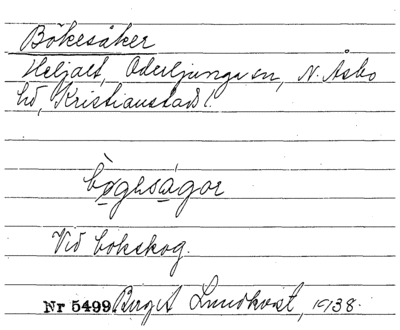 Bökesåker
Heljalt, Oderljunga sn, N. Åsbo
hd, Kristianstads l.
bø̀gesågor
Vid bokskog.
Nr 5499 Birgit Lundkvist, 1938.